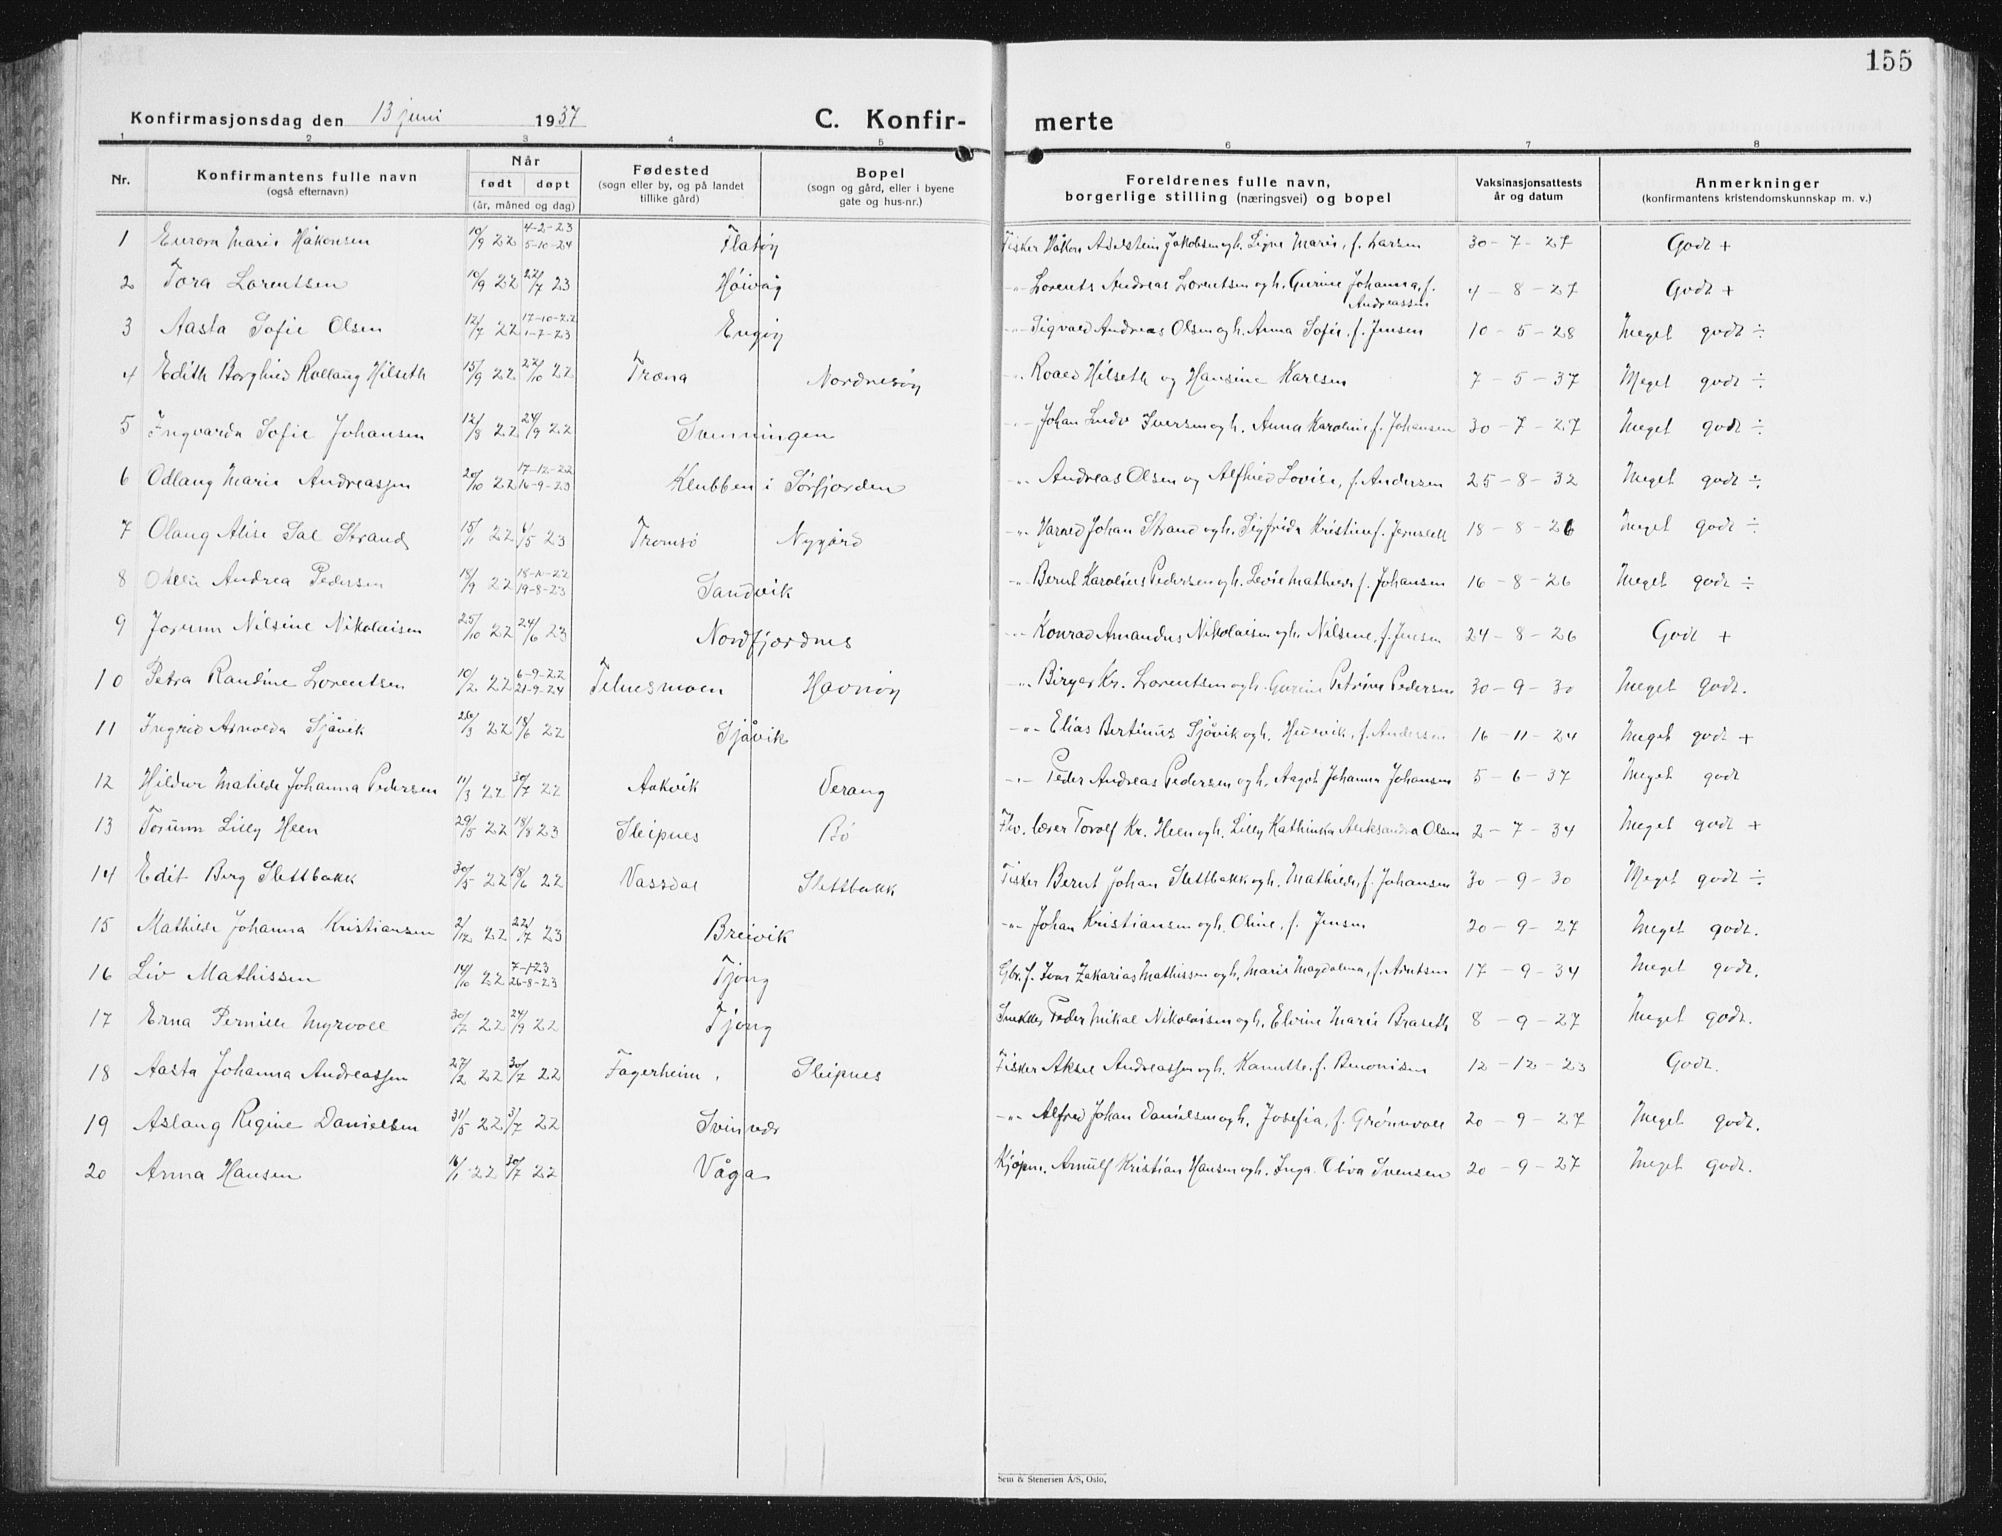 155
Konfirmasjonsdag den 13 juni 1937 C. Konfir- merte
1 2 3 4 5 6 7 8
Nr. Konfirmantens fulle navn (også efternavn) Når født døpt (år, måned og dag) Fødested (sogn eller by, og på landet tillike gård) Bopel (sogn og gård, eller i byene gate og hus-nr.) Foreldrenes fulle navn, borgerlige stilling (næringsvei) og bopel Vaksinasjonsattests år og datum Anmerkninger (konfirmantens kristendomskunnskap m. v.)
1 Marie Håkonsen 10/9 22 4-2-23 5-10-24 Flatøy Fisker Håkon Adelstein Jakobsen og h. Signe Marie, f. Larsen 30-7-27 Godt +
2 Tora Lorentsen 10/9 22 22/7 23 Høivåg -"- Lorents Andreas Lorentsen og h. Gurine Johanna, f. Andreassen 4-8-27 Godt +
3 Aasta Sofie Olsen 12/7 22 17-10-22 1-7-23 Engøy -"- Sigvald Andreas Olsen og h. Anna Sofie, f. Jensen 10-5-28 Meget godt ÷
4 Edith Borghild Rollaug Hilseth 15/9 22 22/10 22 Træna Nordnesøy -"- Roald Hilseth og Hansine Karlsen 7-5-37 Meget godt ÷
5 Ingvarda Sofie Johansen 12/8 22 24/9 22 Svenningen -"- Johan Ludv Iversen og h. Anna Karoline f. Johansen 30-7-27 Meget godt ÷
6 Odlaug Marie Andreassen 20/10 22 17-12-22 16-9-23 Klubben i Sørfjorden -"- Andreas Olsen og Alfhild Lovise, f. Andersen 25-8-32 Meget godt ÷
7 Olaug Alise Sal Strand 15/1 22 6/5 23 Tromsø Nygård -"- Harald Johan Strand og h. Sigfrida Kristine f. 18-8-26 Meget godt ÷
8 Andrea Pedersen 18/9 22 18-10-22 19-8-23 Sandvik -"- Bernt Karolius Pedersen og h. Levie Mathilde f. Johansen 16-8-26 Meget godt ÷
9 Jorunn Nilsine Nikolaisen 25/10 22 24/6 23 Nordfjordnes -"- Konrad Amandus Nikolaisen og h. Nilsine, f. Jensen 24-8-26 Godt +
10 Petra Randine Lorentsen 10/2 22 6-9-22 21-9-24 Telnesmoen Havnøy -"- Birger Kr. Lorentsen og h. Gurine Petrine Pedersen 30-9-30 Meget godt.
11 Ingrid Arnolda Sjåvik 26/3 22 18/6 22 Sjåvik -"- Elias Bertinus Sjåvik og h. Hedevik, f. Andersen 16-11-24 Meget godt +
12 Hildur Matilde Johanna Pedersen 11/3 22 30/7 22 Aakvik Verang -"- Peder Andreas Pedersen og h. Aagot Johanna Johansen 5-6-37 Meget godt
13 Torunn Lilly Heen 29/5 22 18/8 23 Sleipnes Bø Fhv. lærer Torolf Kr. Heen og h. Lilly Kathinka Aleksandra Olsen 2-7-34 Meget godt +
14 Edit Berg Slettbakk 30/5 22 18/6 22 Vassdal Slettbakk Fisker Bernt Johan Slettbakk og h. Mathilde, f. Johansen 30-9-30 Meget godt ÷
15 Mathilde Johanna Kristiansen 2/12 22 22/7 23 Breivik -"- Johan Kristiansen og h. Oline, f. Jensen 20-9-27 Meget godt.
16 Liv Mathissen 14/10 22 7-1-23 26-8-23 Tjong Gbr. f. Ivar Zakarias Mathissen og h. Marie Magdalena, f. Arntsen 17-9-34 Meget godt.
17 Erna Pernille Myrvoll 30/7 22 24/9 22 Tjong Snekker Peder Mikal Nikolaisen og h. Elvine Marie Braseth 8-9-27 Meget godt.
18 Aasta Johanna Andreassen 27/2 22 30/7 22 Fagerheim, Sleipnes Fisker Aksel Andreassen og h. Kamilla, f. Benonisen 12-12-23 Godt.
19 Aslaug Regine Danielsen 31/5 22 3/7 22 Svinvær -"- Alfred Johan Danielsen og h. Josefia, f. Grønnvoll 20-9-27 Meget godt.
20 Anna Hansen 16/1 22 30/7 22 Våga Kjøpm. Arnulf Kristian Hansen og h. Inga Oliva Svensen 20-9-27 Meget godt.
Sem & Stenersen A/S, Oslo.